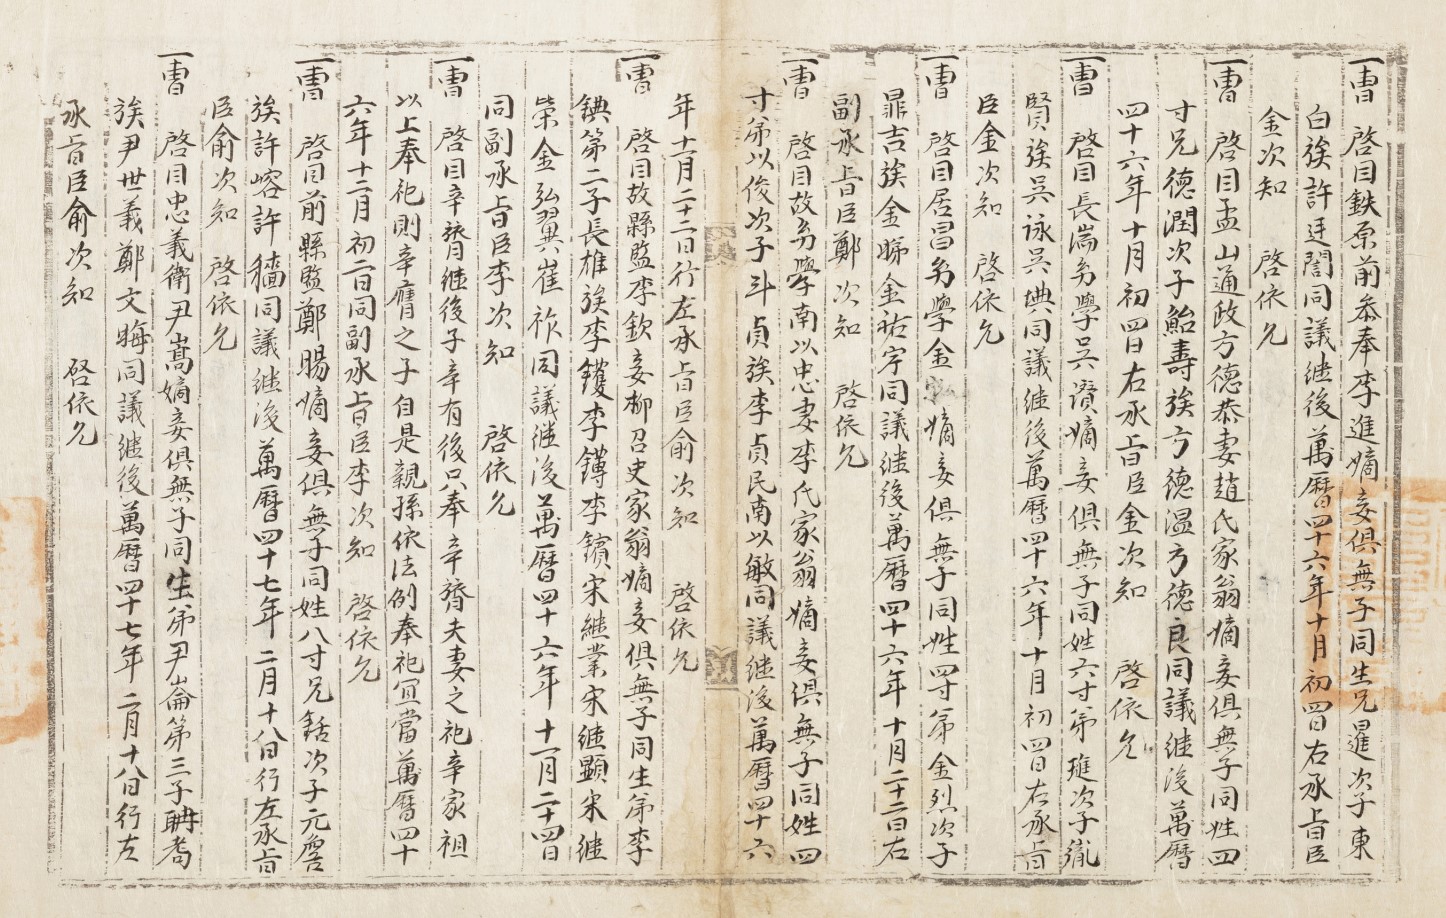 一曹 啓目鉄原前叅奉李進嫡妾俱無子同生兄暹次子東
白族許廷誾同議継後萬曆四十六年十月初四日右承旨臣
金次知 啓依允
一曹 啓目孟山通政方德恭妻趙氏家翁嫡妾俱無子同姓四
寸兄德潤次子鮐壽族方德溫方德良同議継後萬曆
四十六年十月初四日右承旨臣金次知 啓依允
一曹 啓目長湍幼學吳濽嫡妾俱無子同姓六寸弟璡次子胤
賢族吳詠吳㙉同議継後萬曆四十六年十月初四日右承旨
臣金次知 啓依允
一曹 啓目居昌幼學金弘嫡妾俱無子同姓四寸弟金烈次子
罪吉族金聠金祐字同議継後萬曆四十六年十月二十二日右
副承旨臣鄭次知 啓依允
一曹 啓目故幼學南以忠妻李氏家翁嫡妾俱無子同姓四
寸弟以俊次子斗貞族李貞民南以敏同議継後萬曆四十六
年十一月二十二日行左承旨臣俞次知 啓依允
一曹 啓目故縣監李欽妾柳召史家翁嫡妾俱無子同生弟李
錪第二子長雄族李鑊李鑮李鑌宋継業宋継顯宋継
榮金弘翼崔祚同議継後萬曆四十六年十一月二十四日
同副承旨臣李次知 啓依允
一曹 啓目辛膂継後子辛有後只奉辛膂夫妻之祀辛家祖
以上奉祀則辛膺之子自是親孫依法例奉祀宜當萬曆四十
六年十二月初二日同副承旨臣李次知 啓依允
一曹 啓目前縣監鄭暘嫡妾俱無子同姓八寸兄銛次子元詹
族許嵱許穡同議継後萬曆四十七年二月十八日行左承旨
臣俞次知 啓依允
一曹 啓目忠義衛尹嵩嫡妾俱無子同生弟尹崙第三子聃耈
族尹世義鄭文晦同議継後萬曆四十七年二月十八日行左
承旨臣俞次知 啓依允